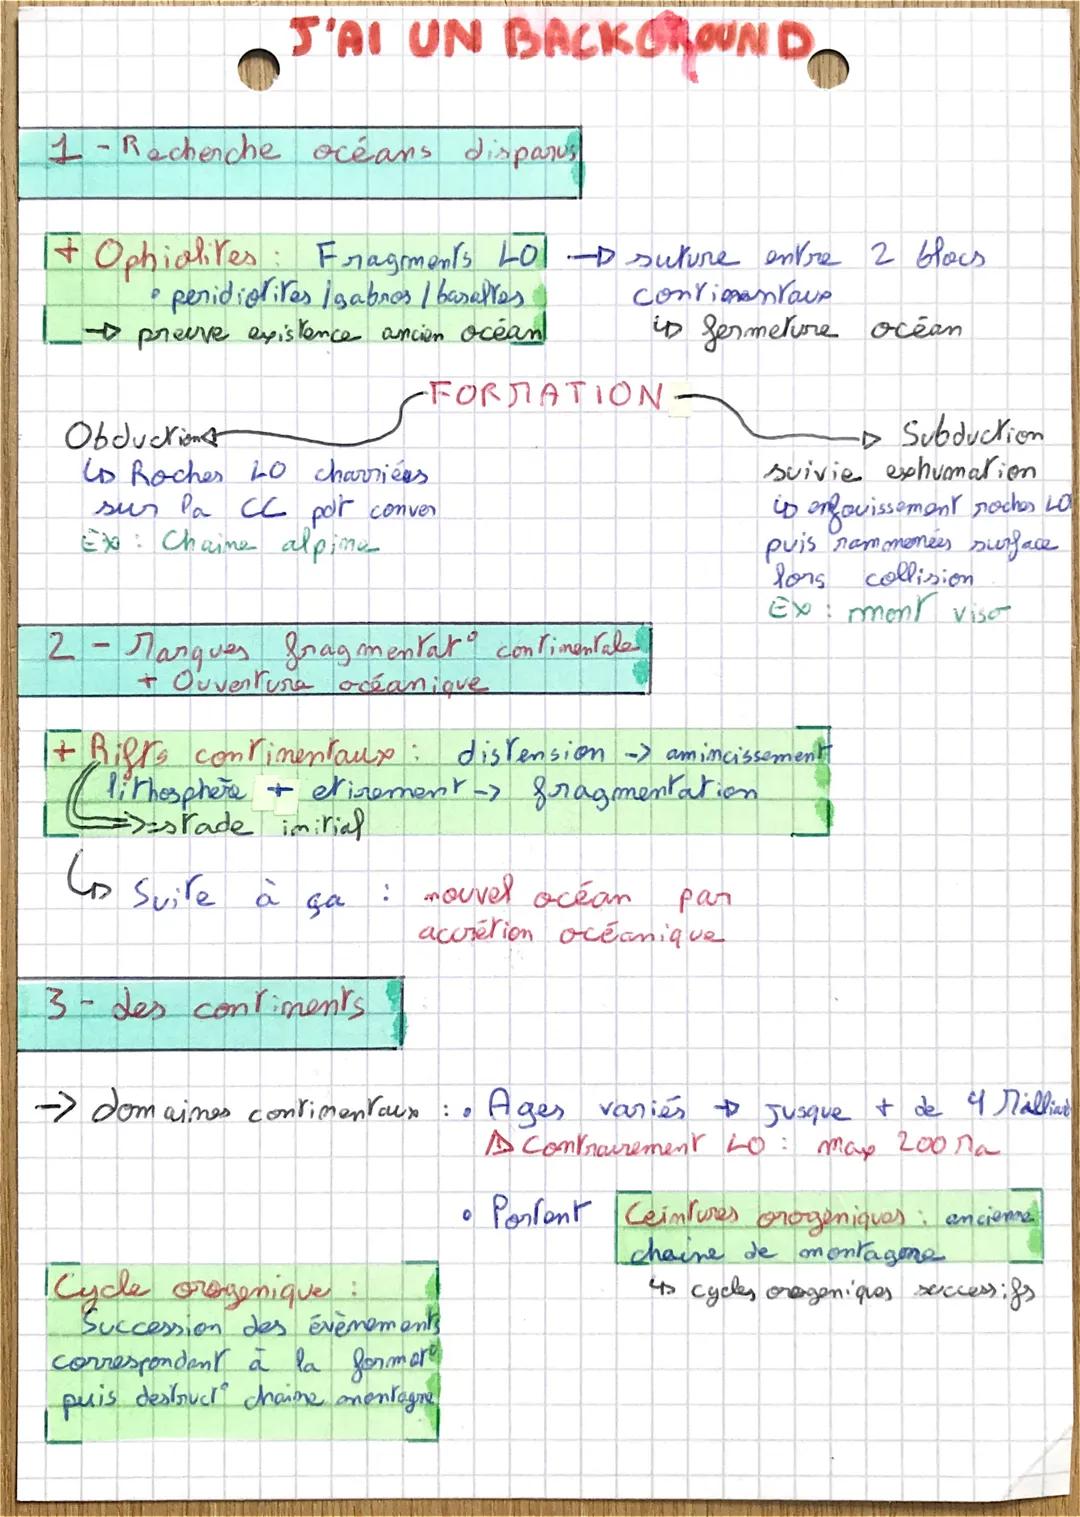 J'AI UN BACKGROUND
1 - Recherche océans disparus
+ Ophiolites : Fragments LO → suture entre 2 blocs
• peridiotites / gabros / basaltes continentaux
→ preuve existence ancien océan ↳ fermeture océan
FORMATION
Obduction
Subduction
↳ Roches LO charriées
sur la CC pdt conver
Ex : Chaine alpine
suivie exhumation
↳ enfouissement roches LO
puis rammenées surface
lors collision
Ex : mont viso
2 - Marques fragmentat° continentale
+ Ouverture océanique
+ Rifts continentaux : distension -> amincissement
lithosphère + etirement -> fragmentation
=> stade initial
↳ Suite à ça : nouvel océan par
accrétion océanique
3 - des continents
-> domaines continentaux : • Ages variés → jusque + de 4 Milliard
⚠ Contrairement LO : max 200 Ma
• Portent Ceintures orogéniques : ancienne
chaine de montagne
↳ cycles orogeniques successifs
Cycle orogenique :
Succession des évènements
correspondent à la format°
puis destruct° chaine montagne